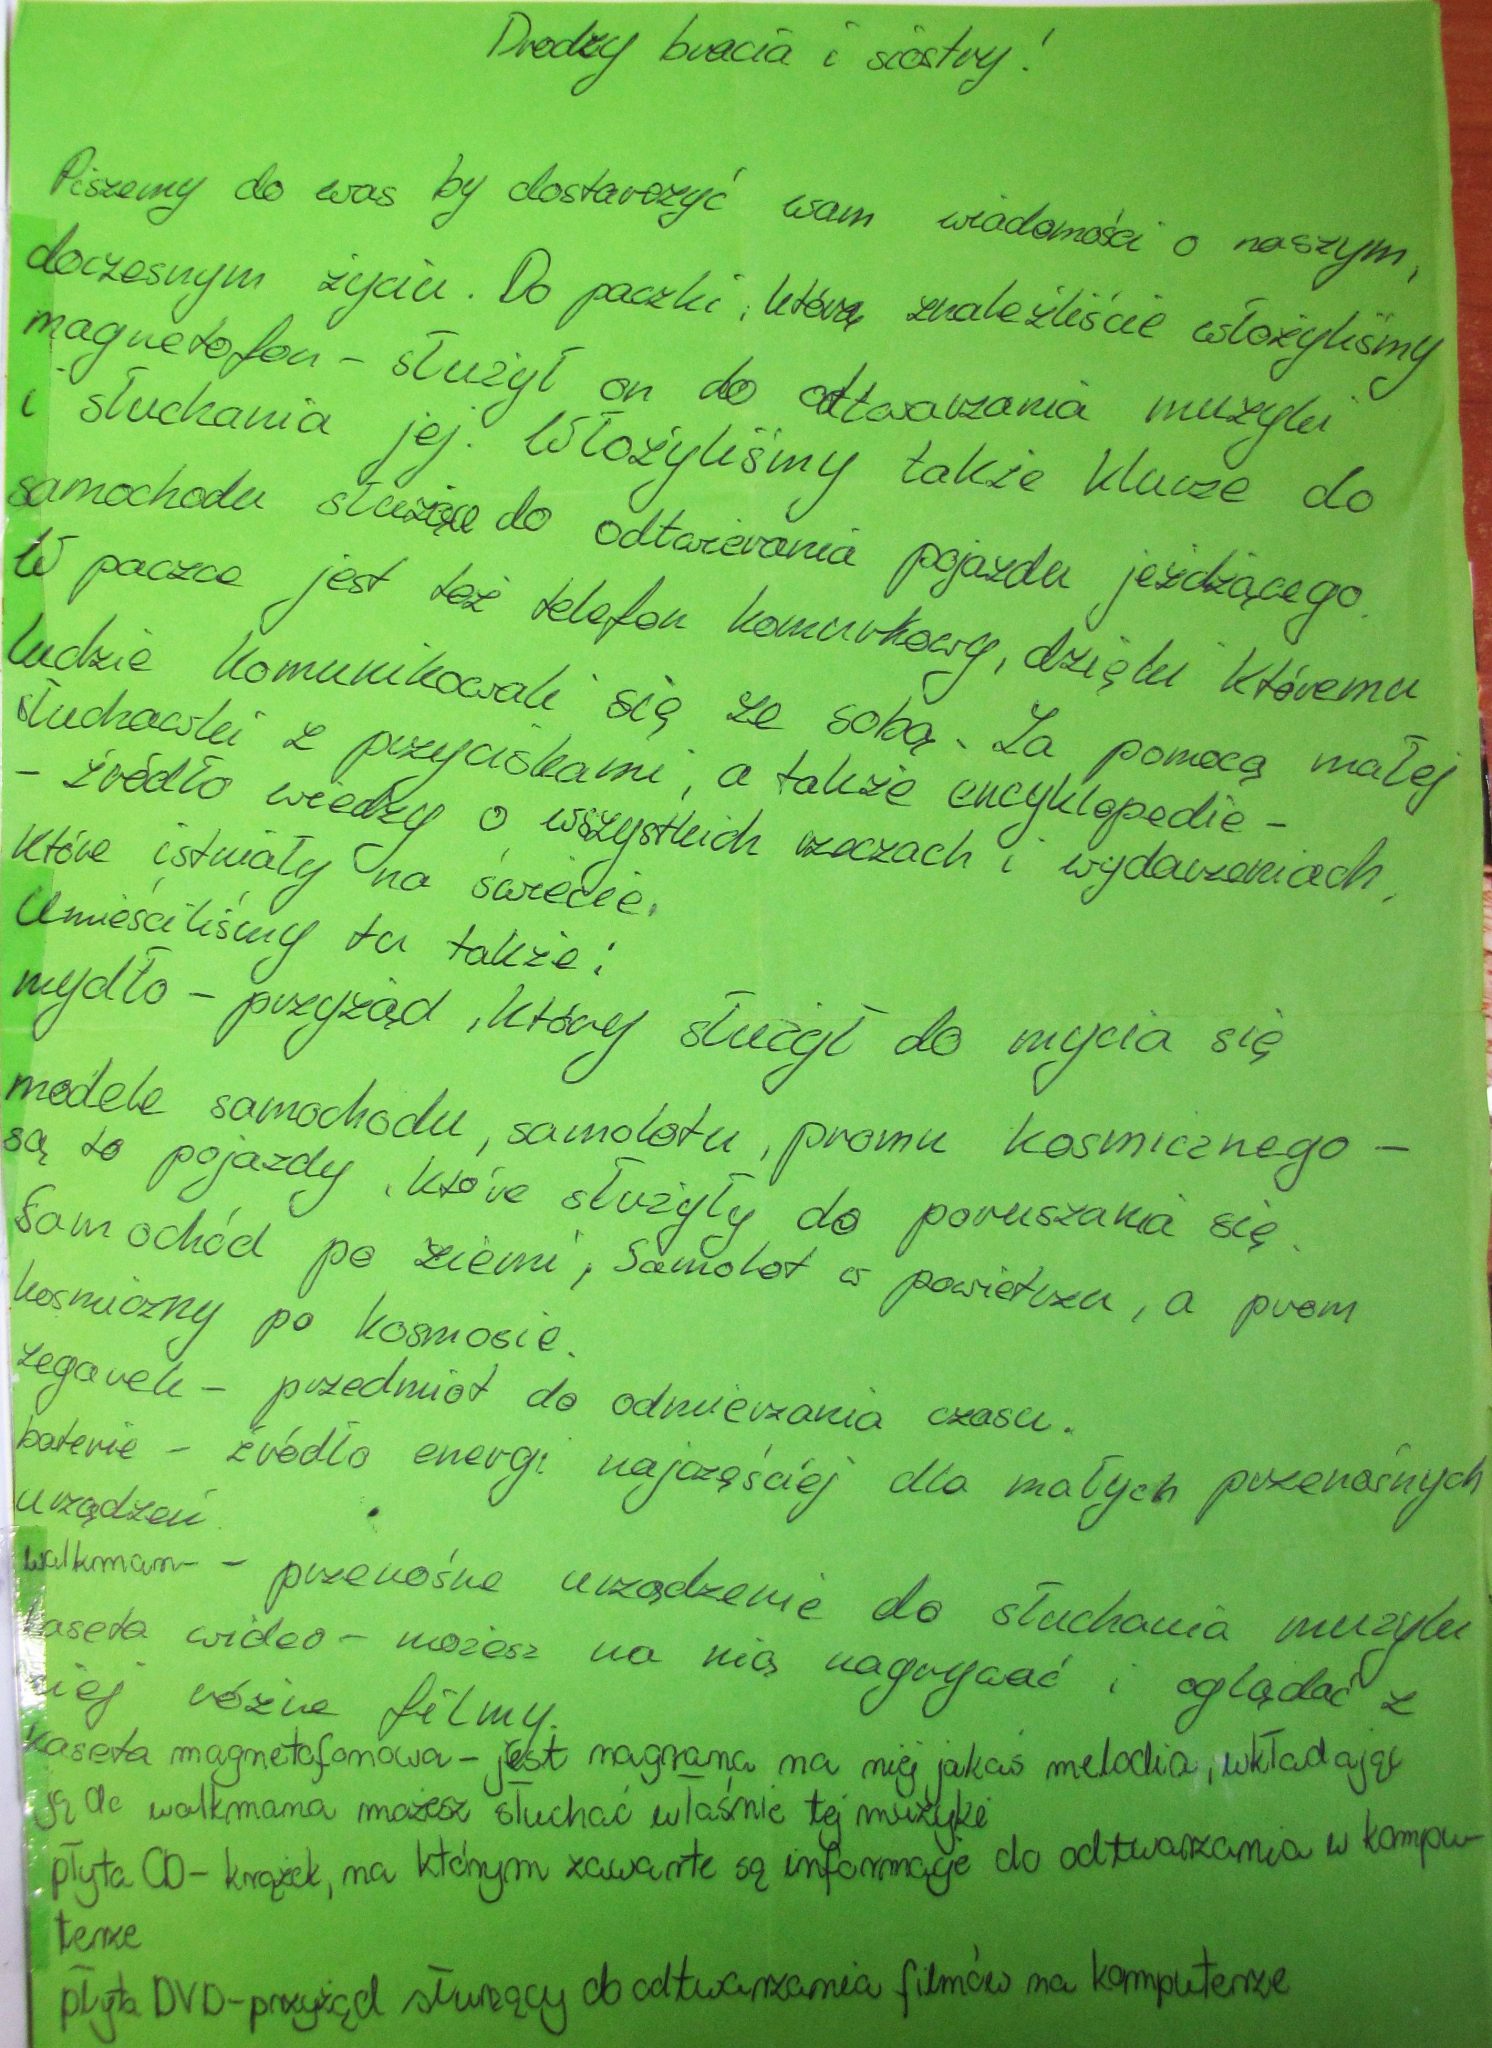 Drodzy bracia i siostry!
Piszemy do was by dostarczyć wam wiadomości o naszym,
doczesnym życiu. Do paczki, którą znaleźliście włożyliśmy
magnetofon - służył on do odtwarzania muzyki
i słuchania jej. Włożyliśmy także klucze do
samochodu służące do odtwierania pojazdu jeżdżącego.
W paczce jest też telefon komurkowy, dzięki któremu
ludzie komunikowali się ze sobą. Za pomocą małej
słuchawki z przyciskami, a także encyklopedie -
- źródło wiedzy o wszystkich rzeczach i wydarzeniach,
które istniały na świecie.
Umieściliśmy tu także:
mydło - przyżąd, który służył do mycia się
modele samochodu, samolotu, promu kosmicznego -
są to pojazdy, które służyły do poruszania się.
Samochód po ziemi, Samolot w powietrzu, a prom
kosmiczny po kosmosie.
zegarek - przedmiot do odmierzania czasu.
baterie - źródło energi najczęściej dla małych przenośnych
urządzeń.
walkman - przenośne urządzenie do słuchania muzyki
kaseta wideo - możesz na nią nagrywać i oglądać z
niej różne filmy.
kaseta magnetofonowa - jest nagrana na niej jakaś melodia, wkładając
ją do walkmana możesz słuchać właśnie tej muzyki
płyta CD - krążek, na którym zawarte są informacje do odtwarzania w kompu-
terze
płyta DVD - przyżąd służący do odtwarzania filmów na komputerze